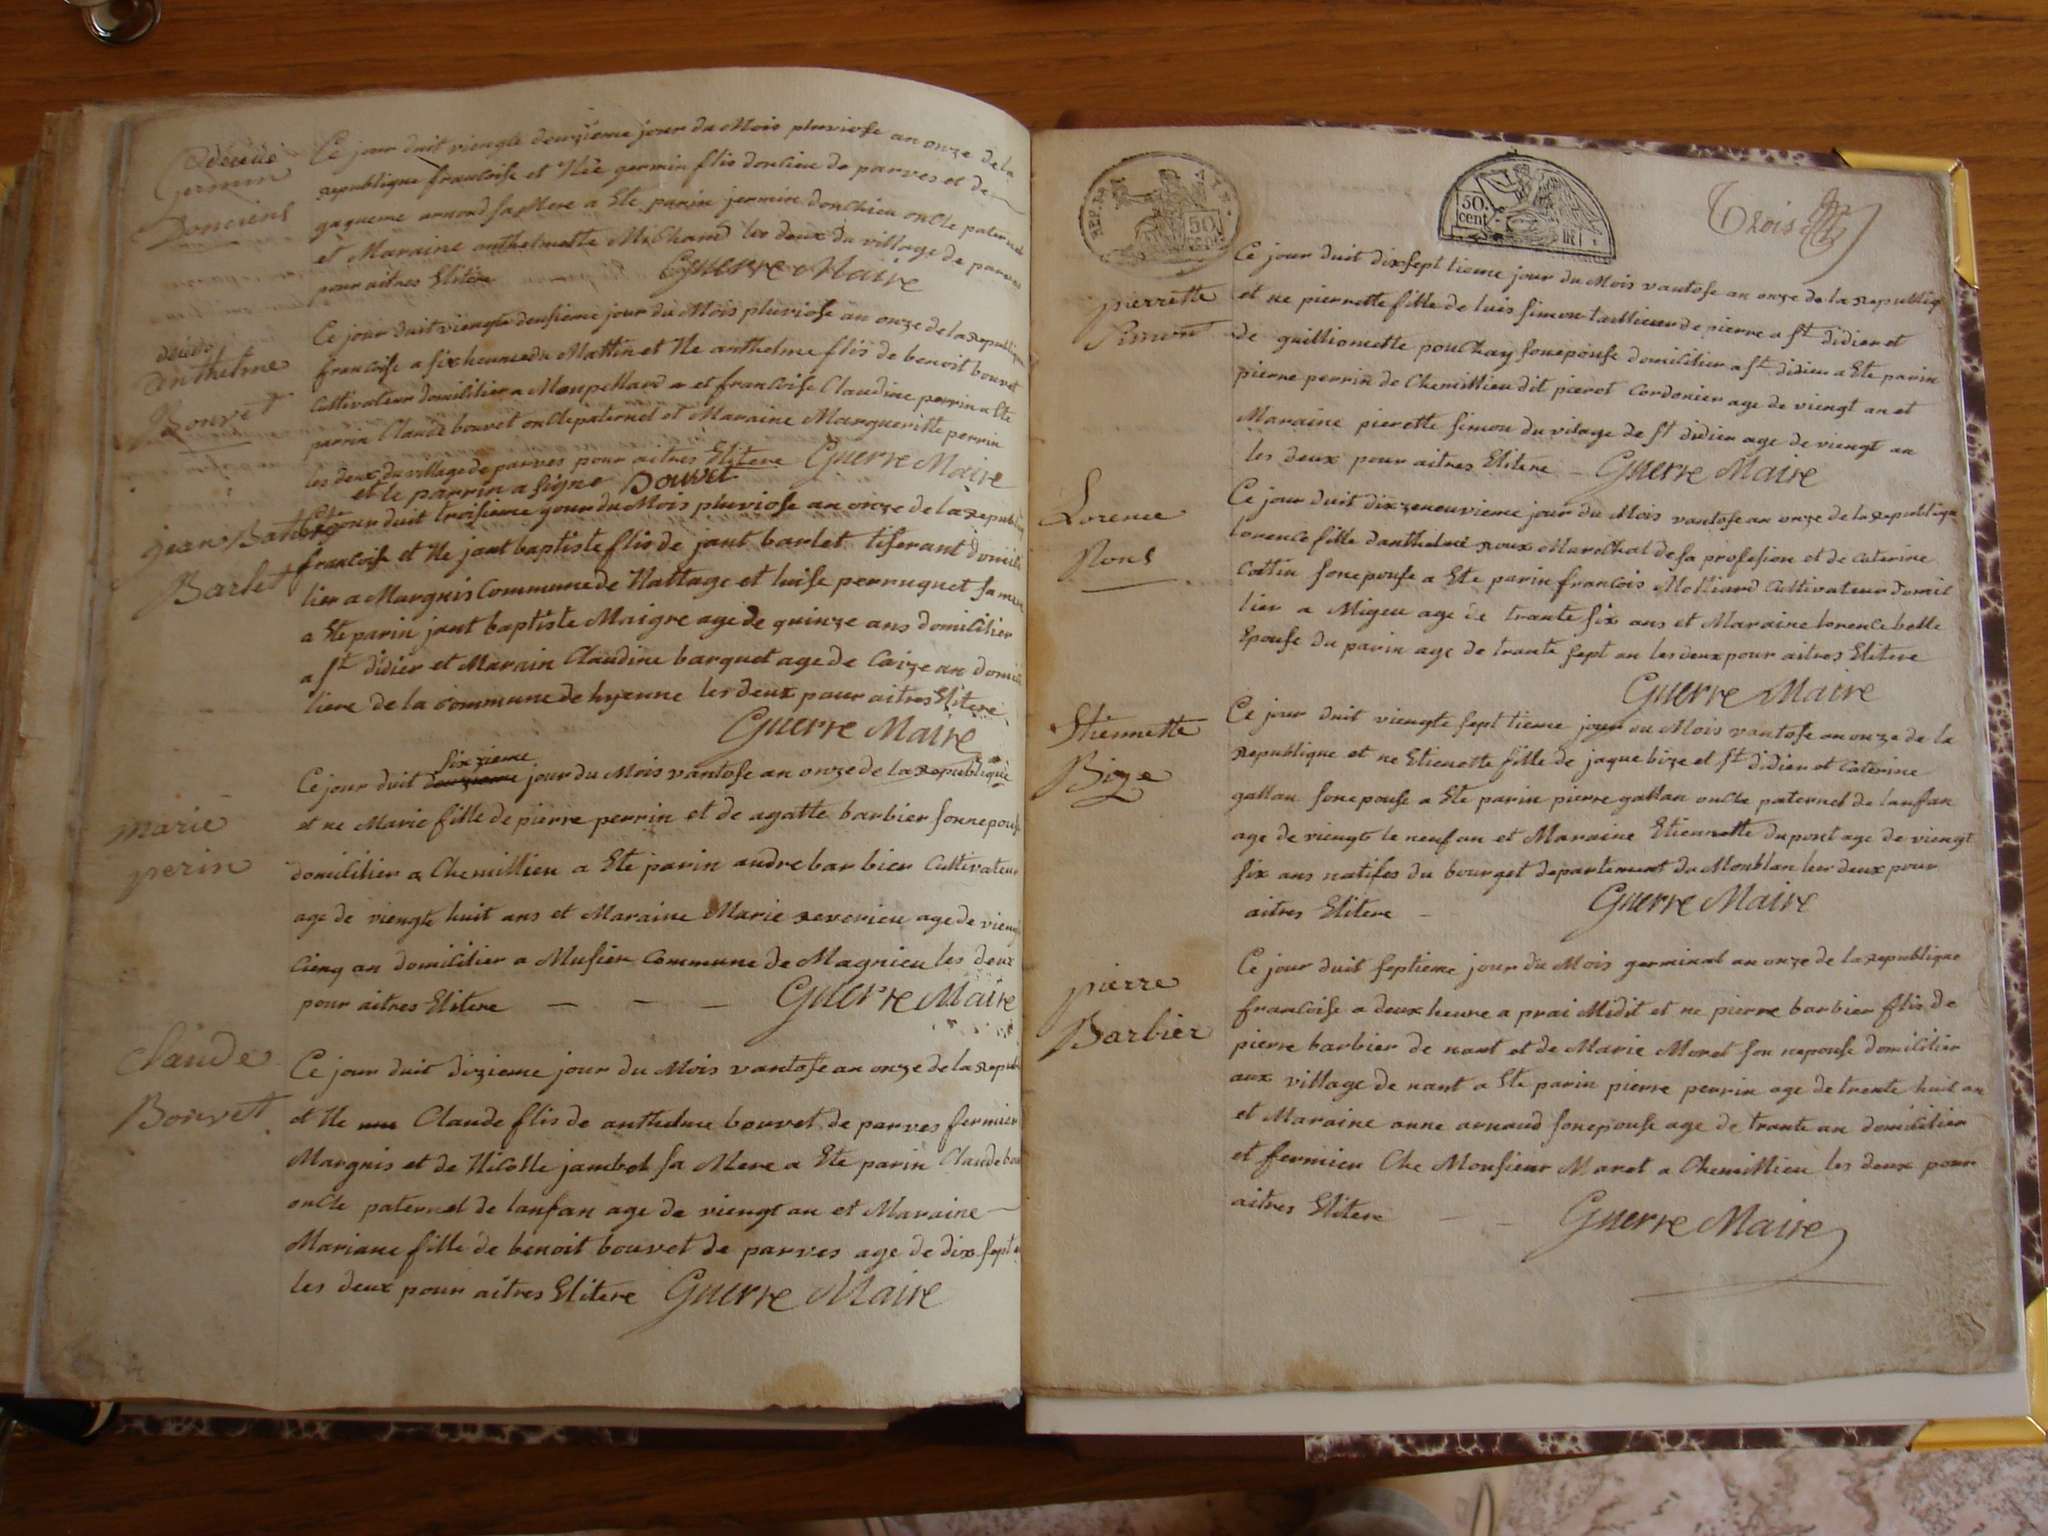 décédé
germin
Donciens
Ce jour duit viengte deuzieme jour du Mois pluviose an onze de la
republique francoise et Née germin flis doncieu de parves et de
gaqueme arnaud sa Mere a Ete parin jermin donchieu oncle paternel
et Maraine anthelmette Michaud les deux du village de parves
pour aitres Elitere Guerre Maire
décédé
anthelme
Bouvet
Ce jour duit viengte deusieme jour du Mois pluviose an onze de la republique
francoise a six heure du Mattin et Ne anthelme flis de benoit bouvet
Cultivateur domicilier a Monpellard et francoise Claudine perrin a Ete
parrin Claude bouvet oncle paternel et Maraine Margueritte perrin
les deux du village de parves pour aitres Elitere Guerre Maire
et le parrin a signe Bouvet
jean Batiste
Barlet
Ce jour duit troisieme jour du Mois pluviose an onze de la republi
francoise et Ne jant baptiste flis de jant barlet tiserant domicil
lier a Margnis Commune de Nattage et luise perruquet sa mere
a Ete parin jant baptiste Maigre age de quinze ans domicilier
a St didier et Marain Claudine barquet age de Caize an domici
liere de la Commune de hyenne les deux pour aitres Elitere
Guerre Maire
marie
perin
sixzieme
Ce jour duit deuzieme jour du Mois vantose an onze de la republique
et ne Marie fille de pierre perrin et de agatte barbier sonnepouse
domicilier a Chemillieu a Ete parin andre barbier Cultivateur
age de viengte huit ans et Maraine Marie reverieu age de viengt
Cienq an domicilier a Musien Commune de Magnieu les deux
pour aitres Elitere — — — Guerre Maire
Claude
Bouvet
Ce jour duit dizieme jour du Mois vantose an onze de la republi
et Ne Claude flis de anthelme bouvet de parves fermier
Margnis et de Nicolle jambet sa Mere a Ete parin Claude bou
oncle paternel de lanfan age de viengt an et Maraine
Mariane fille de benoit bouvet de parves age de dix sept
les deux pour aitres Elitere Guerre Maire
REP. FRA.
50
50.
cent.
Trois
pierrette
Simont
Ce jour duit dixsept tieme jour du Mois vantose an onze de la republiq
et ne pierrette fille de luis simon taillieur de pierre a St didier et
de guilliomette pouchay sonepouse domicilier a St didier a Ete parin
pierre perrin de Chemillieu dit pierot Cordonier age de viengt an et
Maraine pierette simon du vilage de St didier age de viengt an
les deux pour aitres Elitere — Guerre Maire
Lorence
Rous
Ce jour duit dixzeneuvieme jour du Mois vantose an onze de la republiqu
lorence fille danthelme roux Marechal de sa profesion et de Caterine
Cottin sonepouse a Ete parin francois Molliard Cultivateur domici
lier a Migeu age de trante six ans et Maraine lorence belle
Epouse du parin age de trante sept an les deux pour aitres Elitere
Guerre Maire
Etiennette
Bize
Ce jour duit viengte sept tieme jour du Mois vantose an onze de la
republique et ne Etienette fille de jaque bize et St didier et Caterine
gallan sonepouse a Ete parin pierre gallan oncle paternel de lanfan
age de viengte le neuf an et Maraine Etienette dupont age de viengt
six ans natifes du bourget departement du Monblan les deux pour
aitres Elitere — Guerre Maire
pierre
Barbier
Ce jour duit septieme jour du Mois germinal an onze de la republique
francoise a deux heure a prai Midit et ne pierre barbier flis de
pierre barbier de nant et de Marie Moret son nepouse domicilier
aux village de nant a Ete parin pierre perrin age de trente huit an
et Maraine anne arnaud sonepouse age de trante an domicilier
et fermier Che Monsieur Maret a Chemillieu les deux pour
aitres Elitere — — Guerre Maire